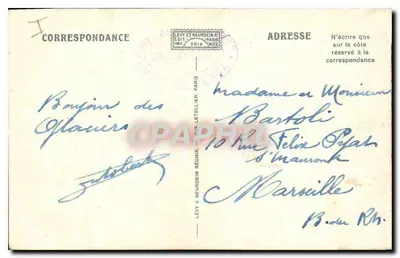 I
CORRESPONDANCE
LÉVY ET NEURDEIN RÉUNIS
PARIS
ADRESSE
N'écrire que
sur le côté
réservé à la
correspondance
Bonjour des
glaciers
LÉVY & NEURDEIN RÉUNIS, LETELLIER, PARIS
madame et Monsieur
Bartoli
10 Rue Félix Pyat
St Mauront
Marseille
B. du Rh.